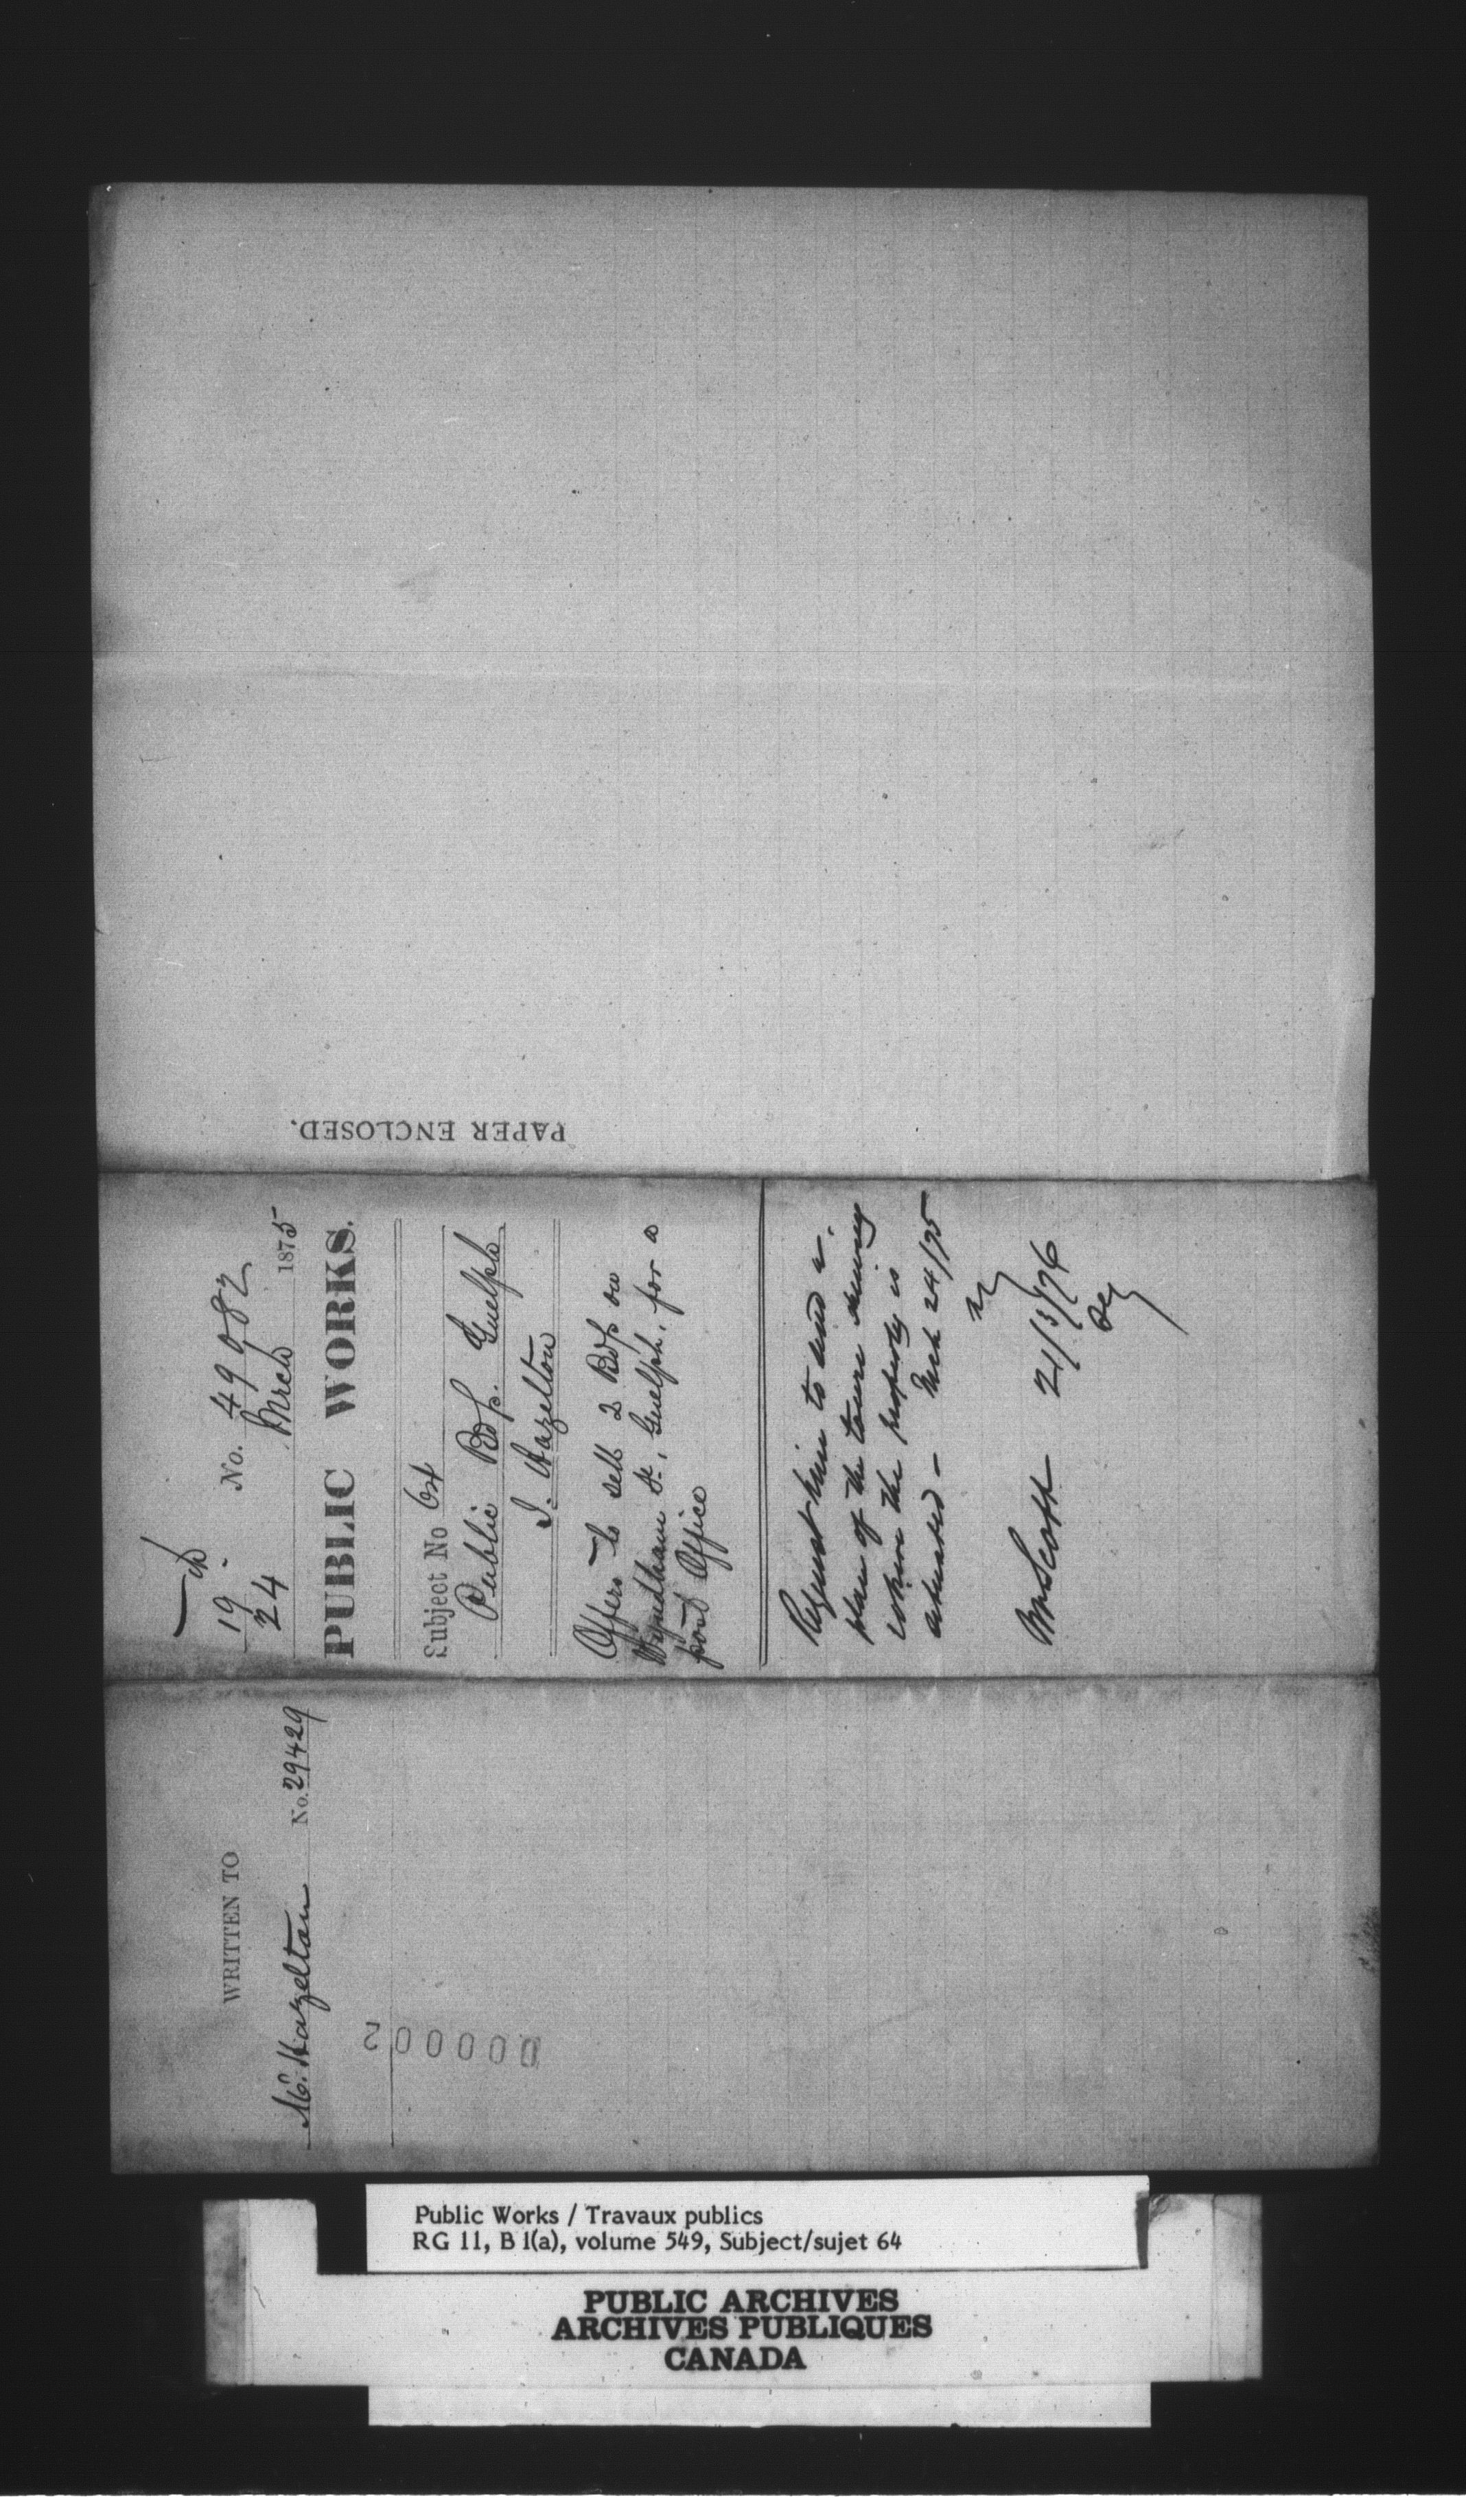 PAPER ENCLOSED.
19
24
No. 49082
March 1875
PUBLIC WORKS.
Subject No 64
Public Bdg. Guelph
J. Hazelton
Offers to sell 2 Bdgs on
Wyndham St, Guelph, for a
post Office
Request him to send a
plan of the town shewing
where the property is
situated — Mch 24/75
Mr Scott 21/3/76
WRITTEN TO
Mr. Hazelton No. 29429
000002
Public Works / Travaux publics
RG 11, B 1(a), volume 549, Subject/sujet 64
PUBLIC ARCHIVES
ARCHIVES PUBLIQUES
CANADA